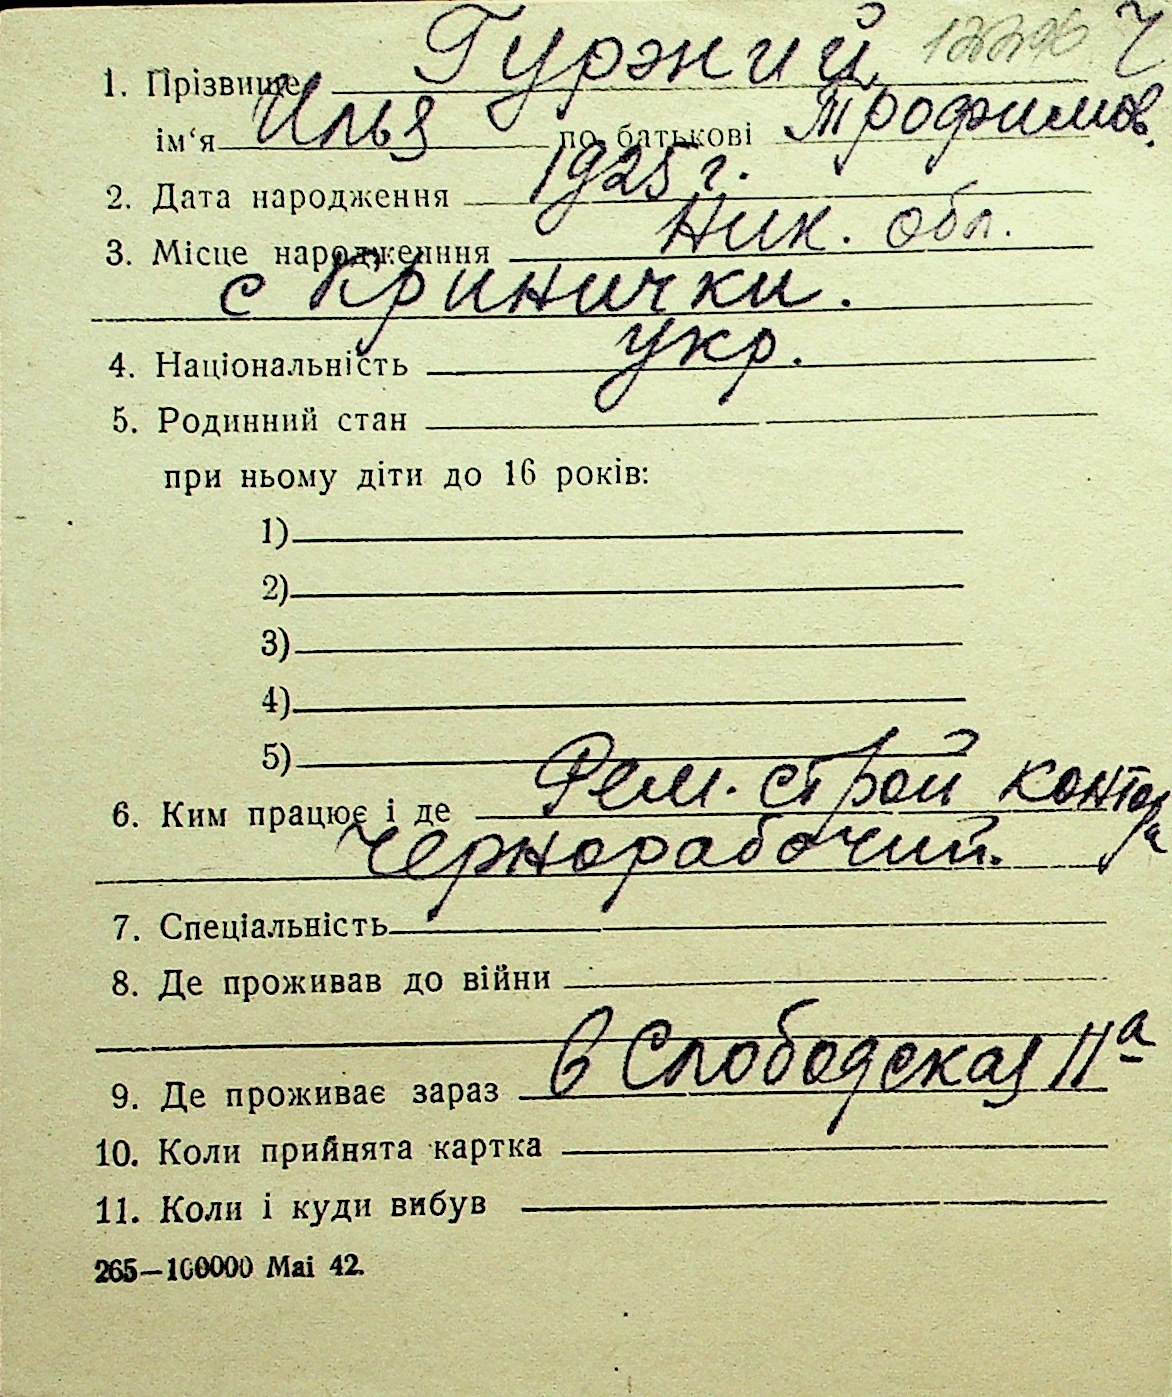 1. Прізвище Гуржий 12296 Ч
ім‘я Илья по батькові Трофимов.
2. Дата народження 1925 г.
3. Місце народженння Ник. обл.
с Кринички.
4. Національність укр.
5. Родинний стан
при ньому діти до 16 років:
1)
2)
3)
4)
5)
6. Ким працює і де Рем. строй контора
Чернорабочий.
7. Спеціальність
8. Де проживав до війни
9. Де проживає зараз 6 Слободская 11а
10. Коли прийнята картка
11. Коли і куди вибув
265—100000 Mai 42.